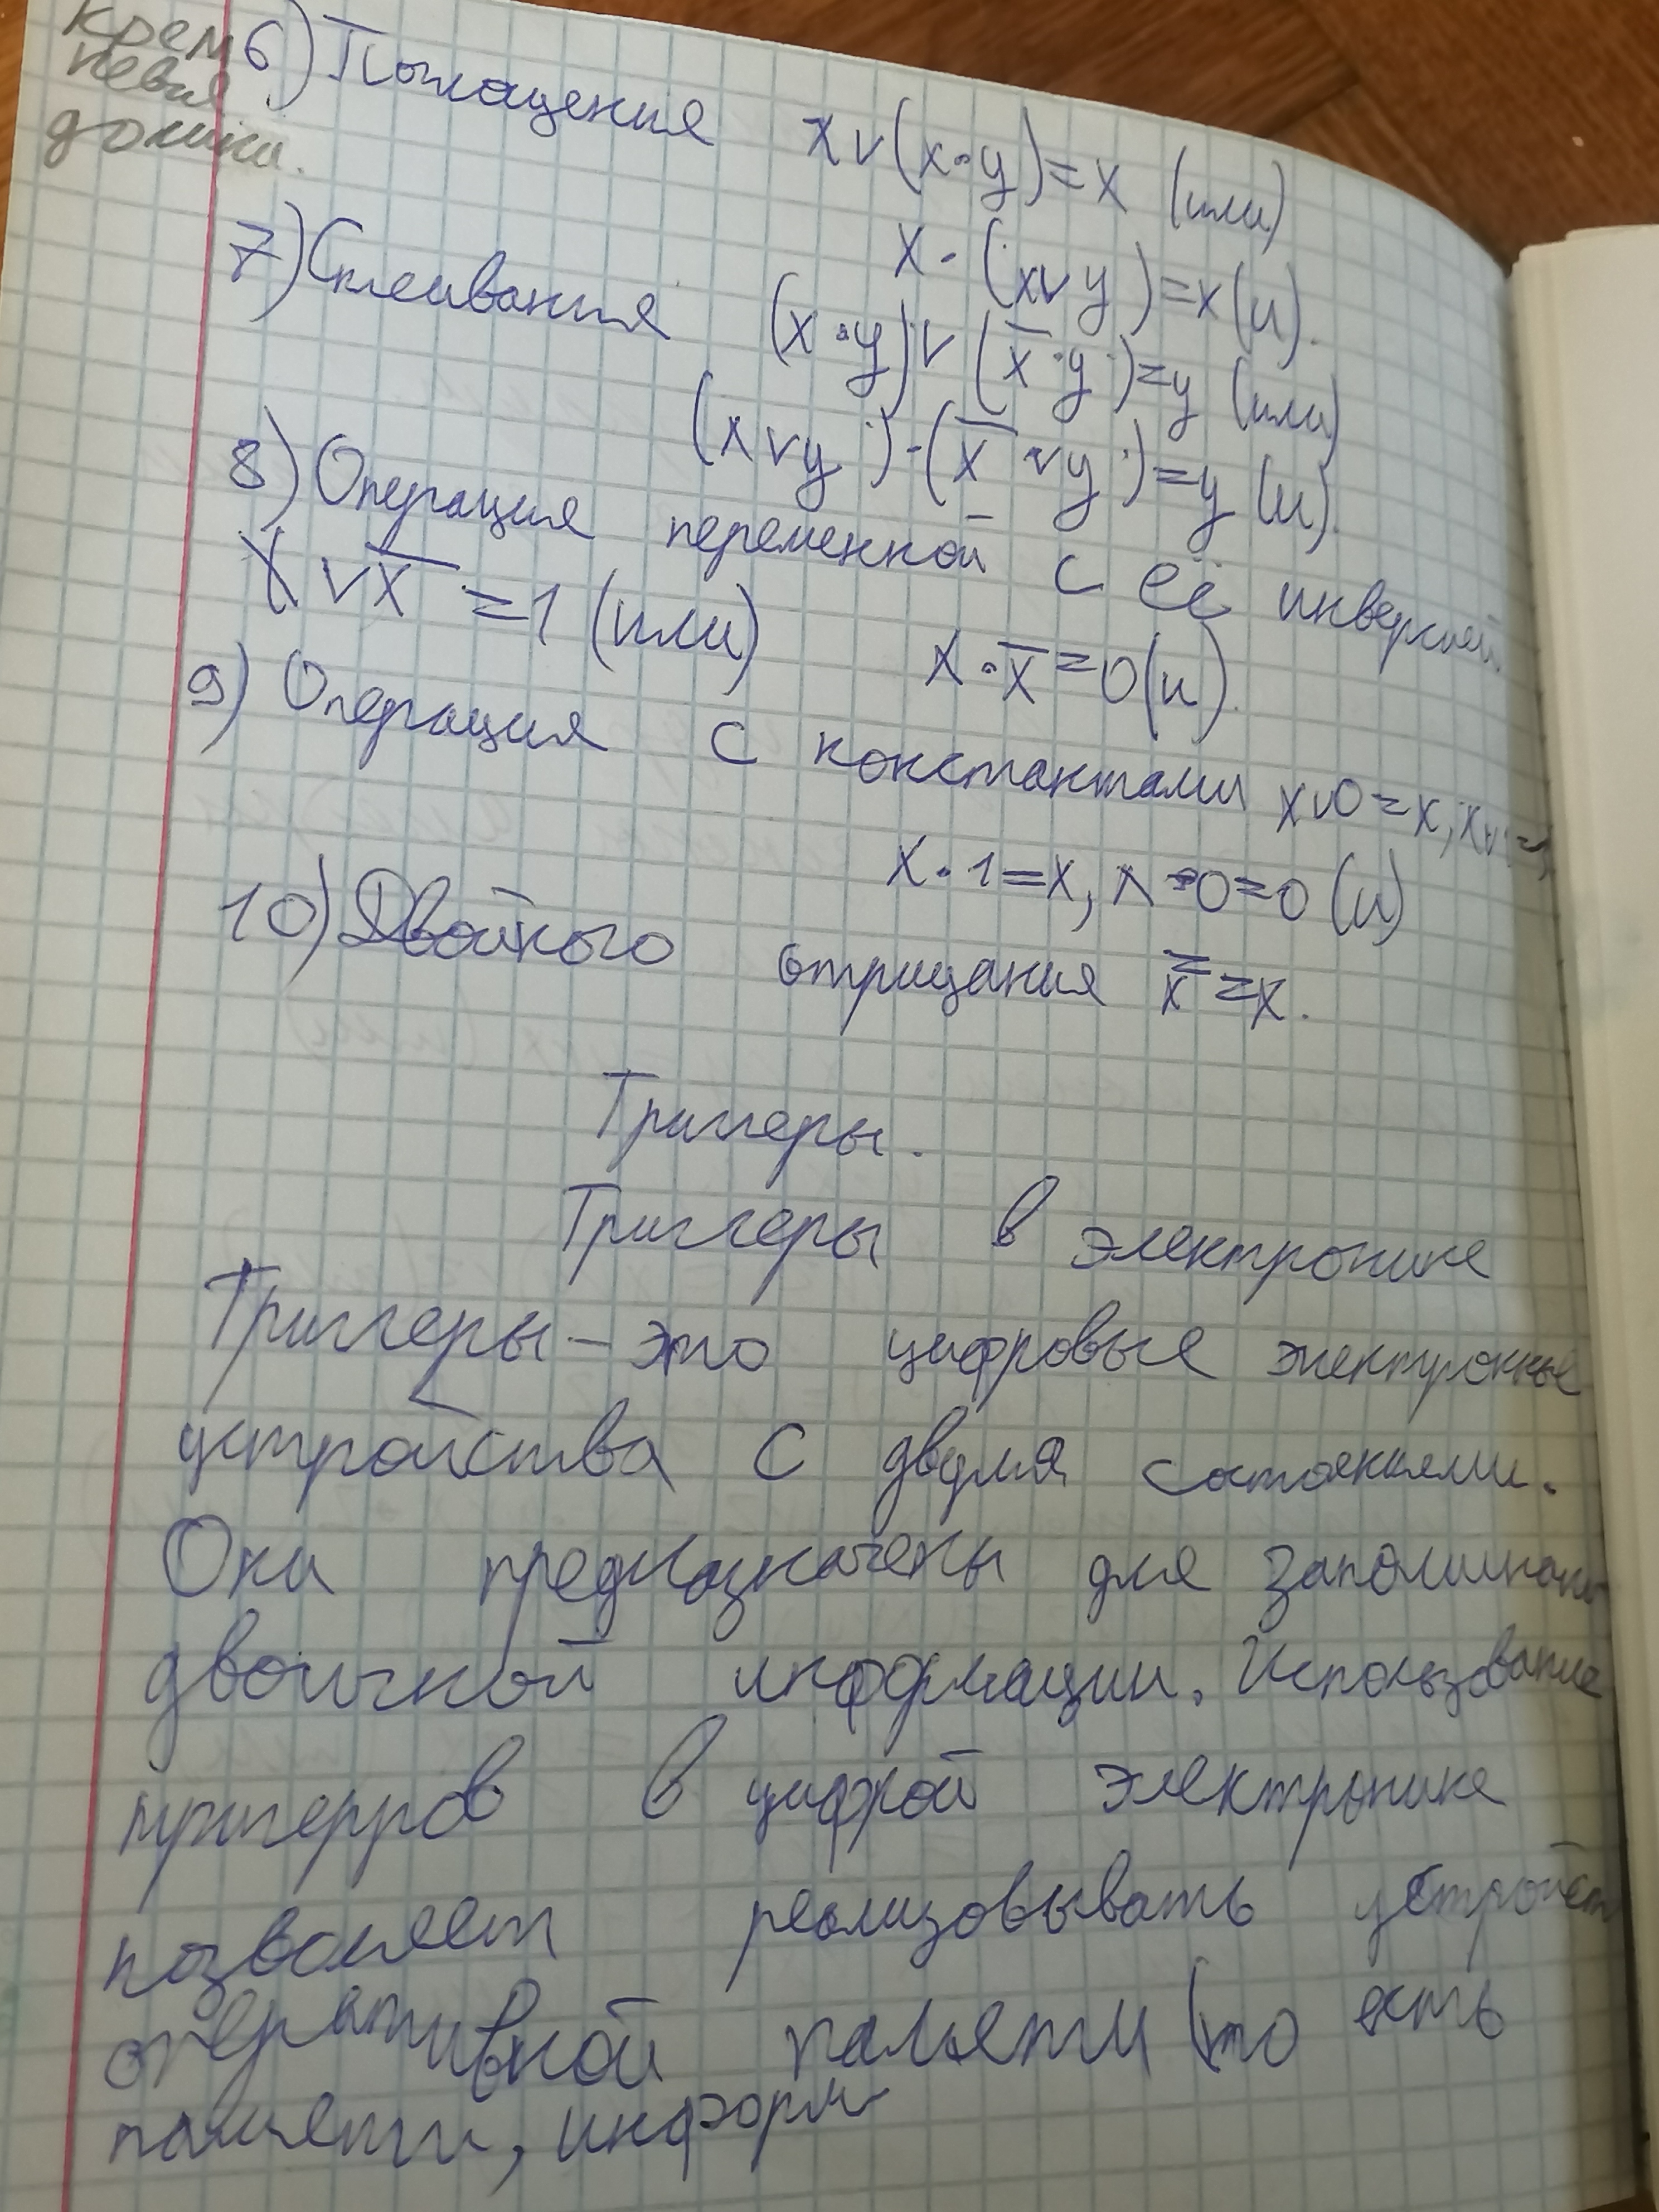 крем
невая
6) Поглощения x v (x · y) = x (или)
x · (x v y) = x (и).
7) Склеивания (x · y) v (x̅ · y) = y (или)
(x v y) · (x̅ v y) = y (и).
8) Операция переменной с её инверсией.
x v x̅ = 1 (или) x · x̅ = 0 (и).
9) Операция с константами x v 0 = x, x v 1 = 1,
x · 1 = x, x · 0 = 0 (и)
10) Двойного отрицания x̿ = x.
Триггеры.
Триггеры в электронике
Триггеры – это цифровые электронные
устройства с двумя состояниями.
Они предназначены для запоминани
двоичной информации. Использование
триггерров в цифрой электронике
позволяет реализовывать устройст
оперативной памяти (то есть
памяти, информ